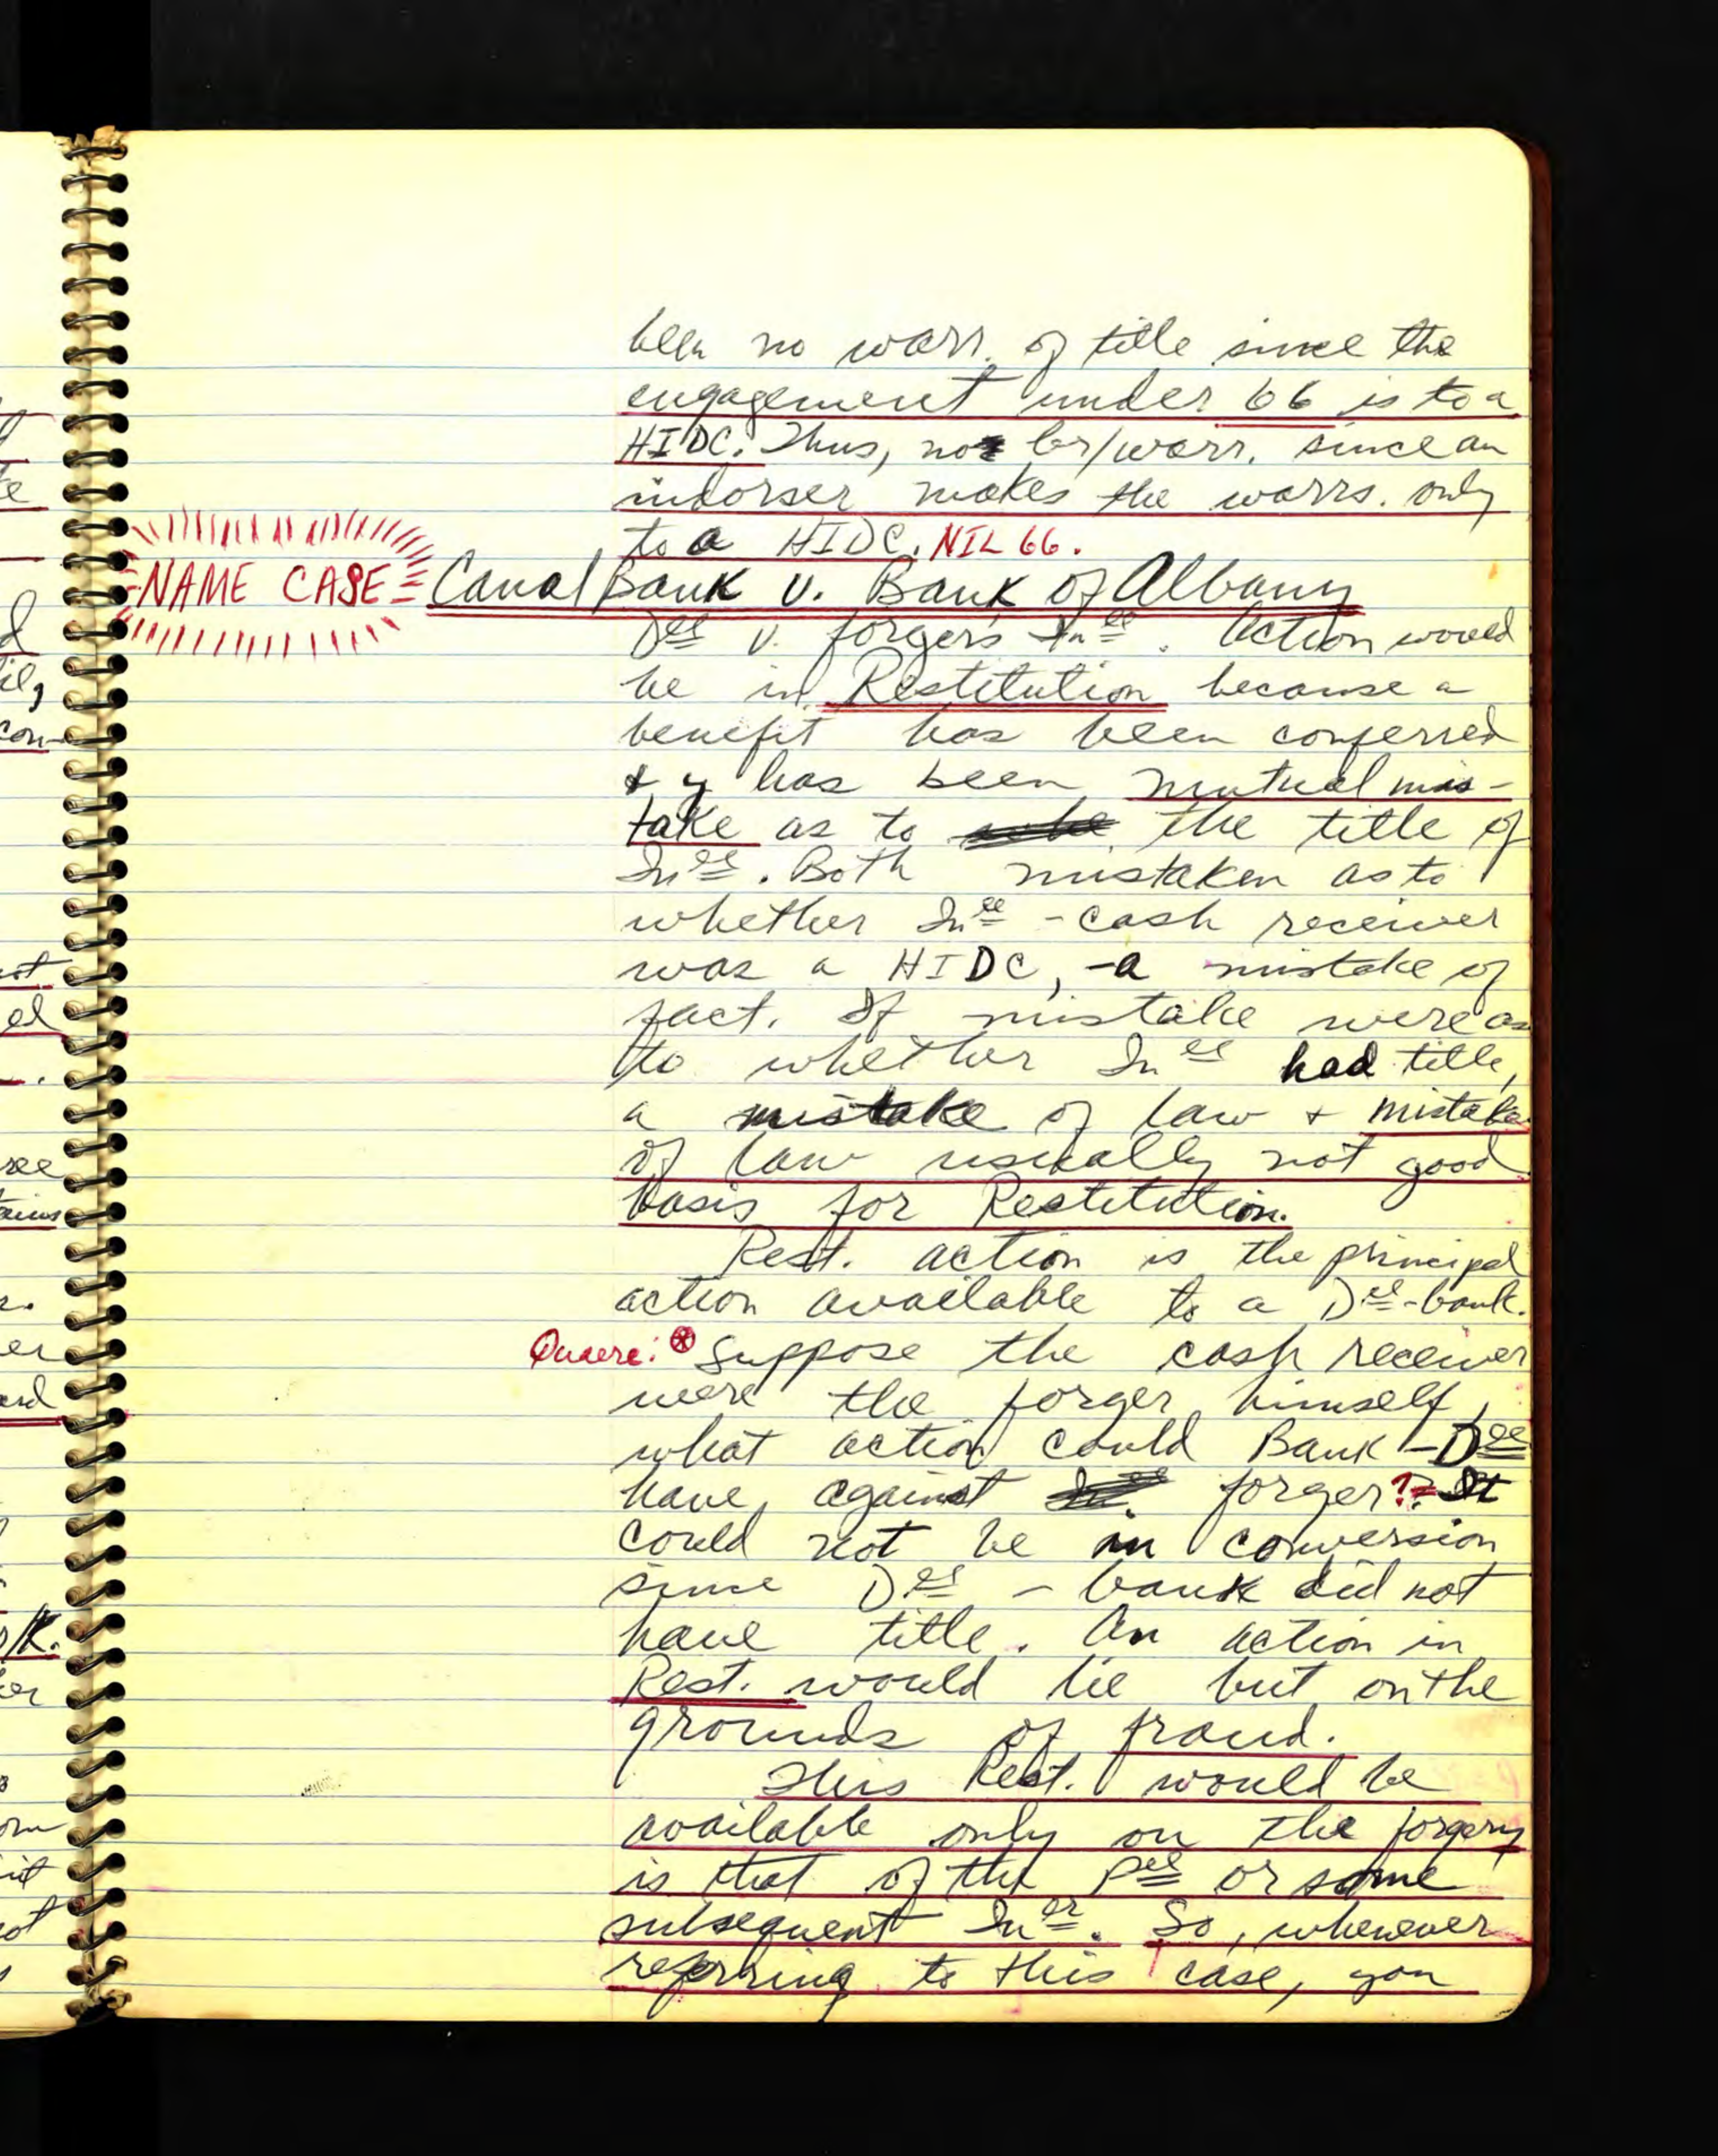 been no warr. of title since the
engagement under 66 is to a
HIDC. Thus, no br/warr. since an
indorser makes the warrs. only
to a HIDC. NIL 66.
NAME CASE Canal Bank v. Bank of Albany
Dee v. forger's Inee. Action would
be in Restitution because a
benefit has been conferred
& y has been mutual mis-
take as to the title of
Inee. Both mistaken as to
whether Inee - cash receiver
was a HIDC, - a mistake of
fact. If mistake were as
to whether Inee had title,
a mistake of law + mistake
of law usually not good
basis for Restitution.
Rest. action is the principal
action available to a Dee-bank.
Quaere: Suppose the cash receiver
were the forger himself,
what action could Bank - Dee
have against forger? It
could not be in conversion
since Dee - bank did not
have title. An action in
Rest. would lie but on the
grounds of fraud.
This Rest. would be
available only on the forgery
is that of the Pee or some
subsequent Iner. So, whenever
referring to this case, you